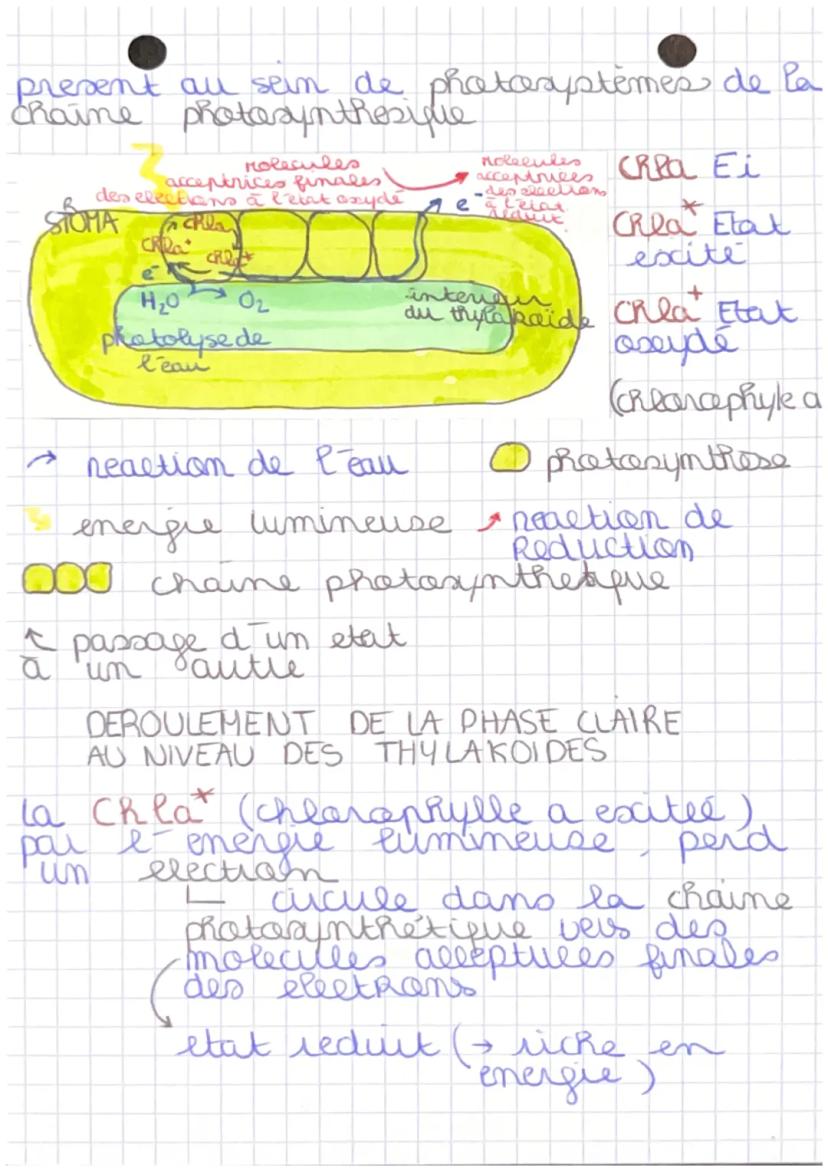 présent au sein de photosystèmes de la
chaîne photosynthésique
molécules
acceptrices finales
des electrons à l'état oxydé
molécules
acceptrices
des electrons
à l'état
réduit
e-
STROMA
Chla
Chla+
Chla*
e-
H₂O → O₂
photolyse de
l'eau
interieur
du thylakoïde
Chla Ei
Chla* Etat
excité
Chla+ Etat
oxydé
(chlorophyle a
→ reaction de l'eau
photosynthose
energie lumineuse
reaction de
Reduction
chaîne photosynthetique
passage d'un etat
à un autre
DEROULEMENT DE LA PHASE CLAIRE
AU NIVEAU DES THYLAKOIDES
La Chla* (chlorophylle a exitée)
par l'energie lumineuse, perd
un electron
circule dans la chaine
photosynthétique vers des
molecules acceptrices finales
des electrons
etat reduit (→ riche en
energie)